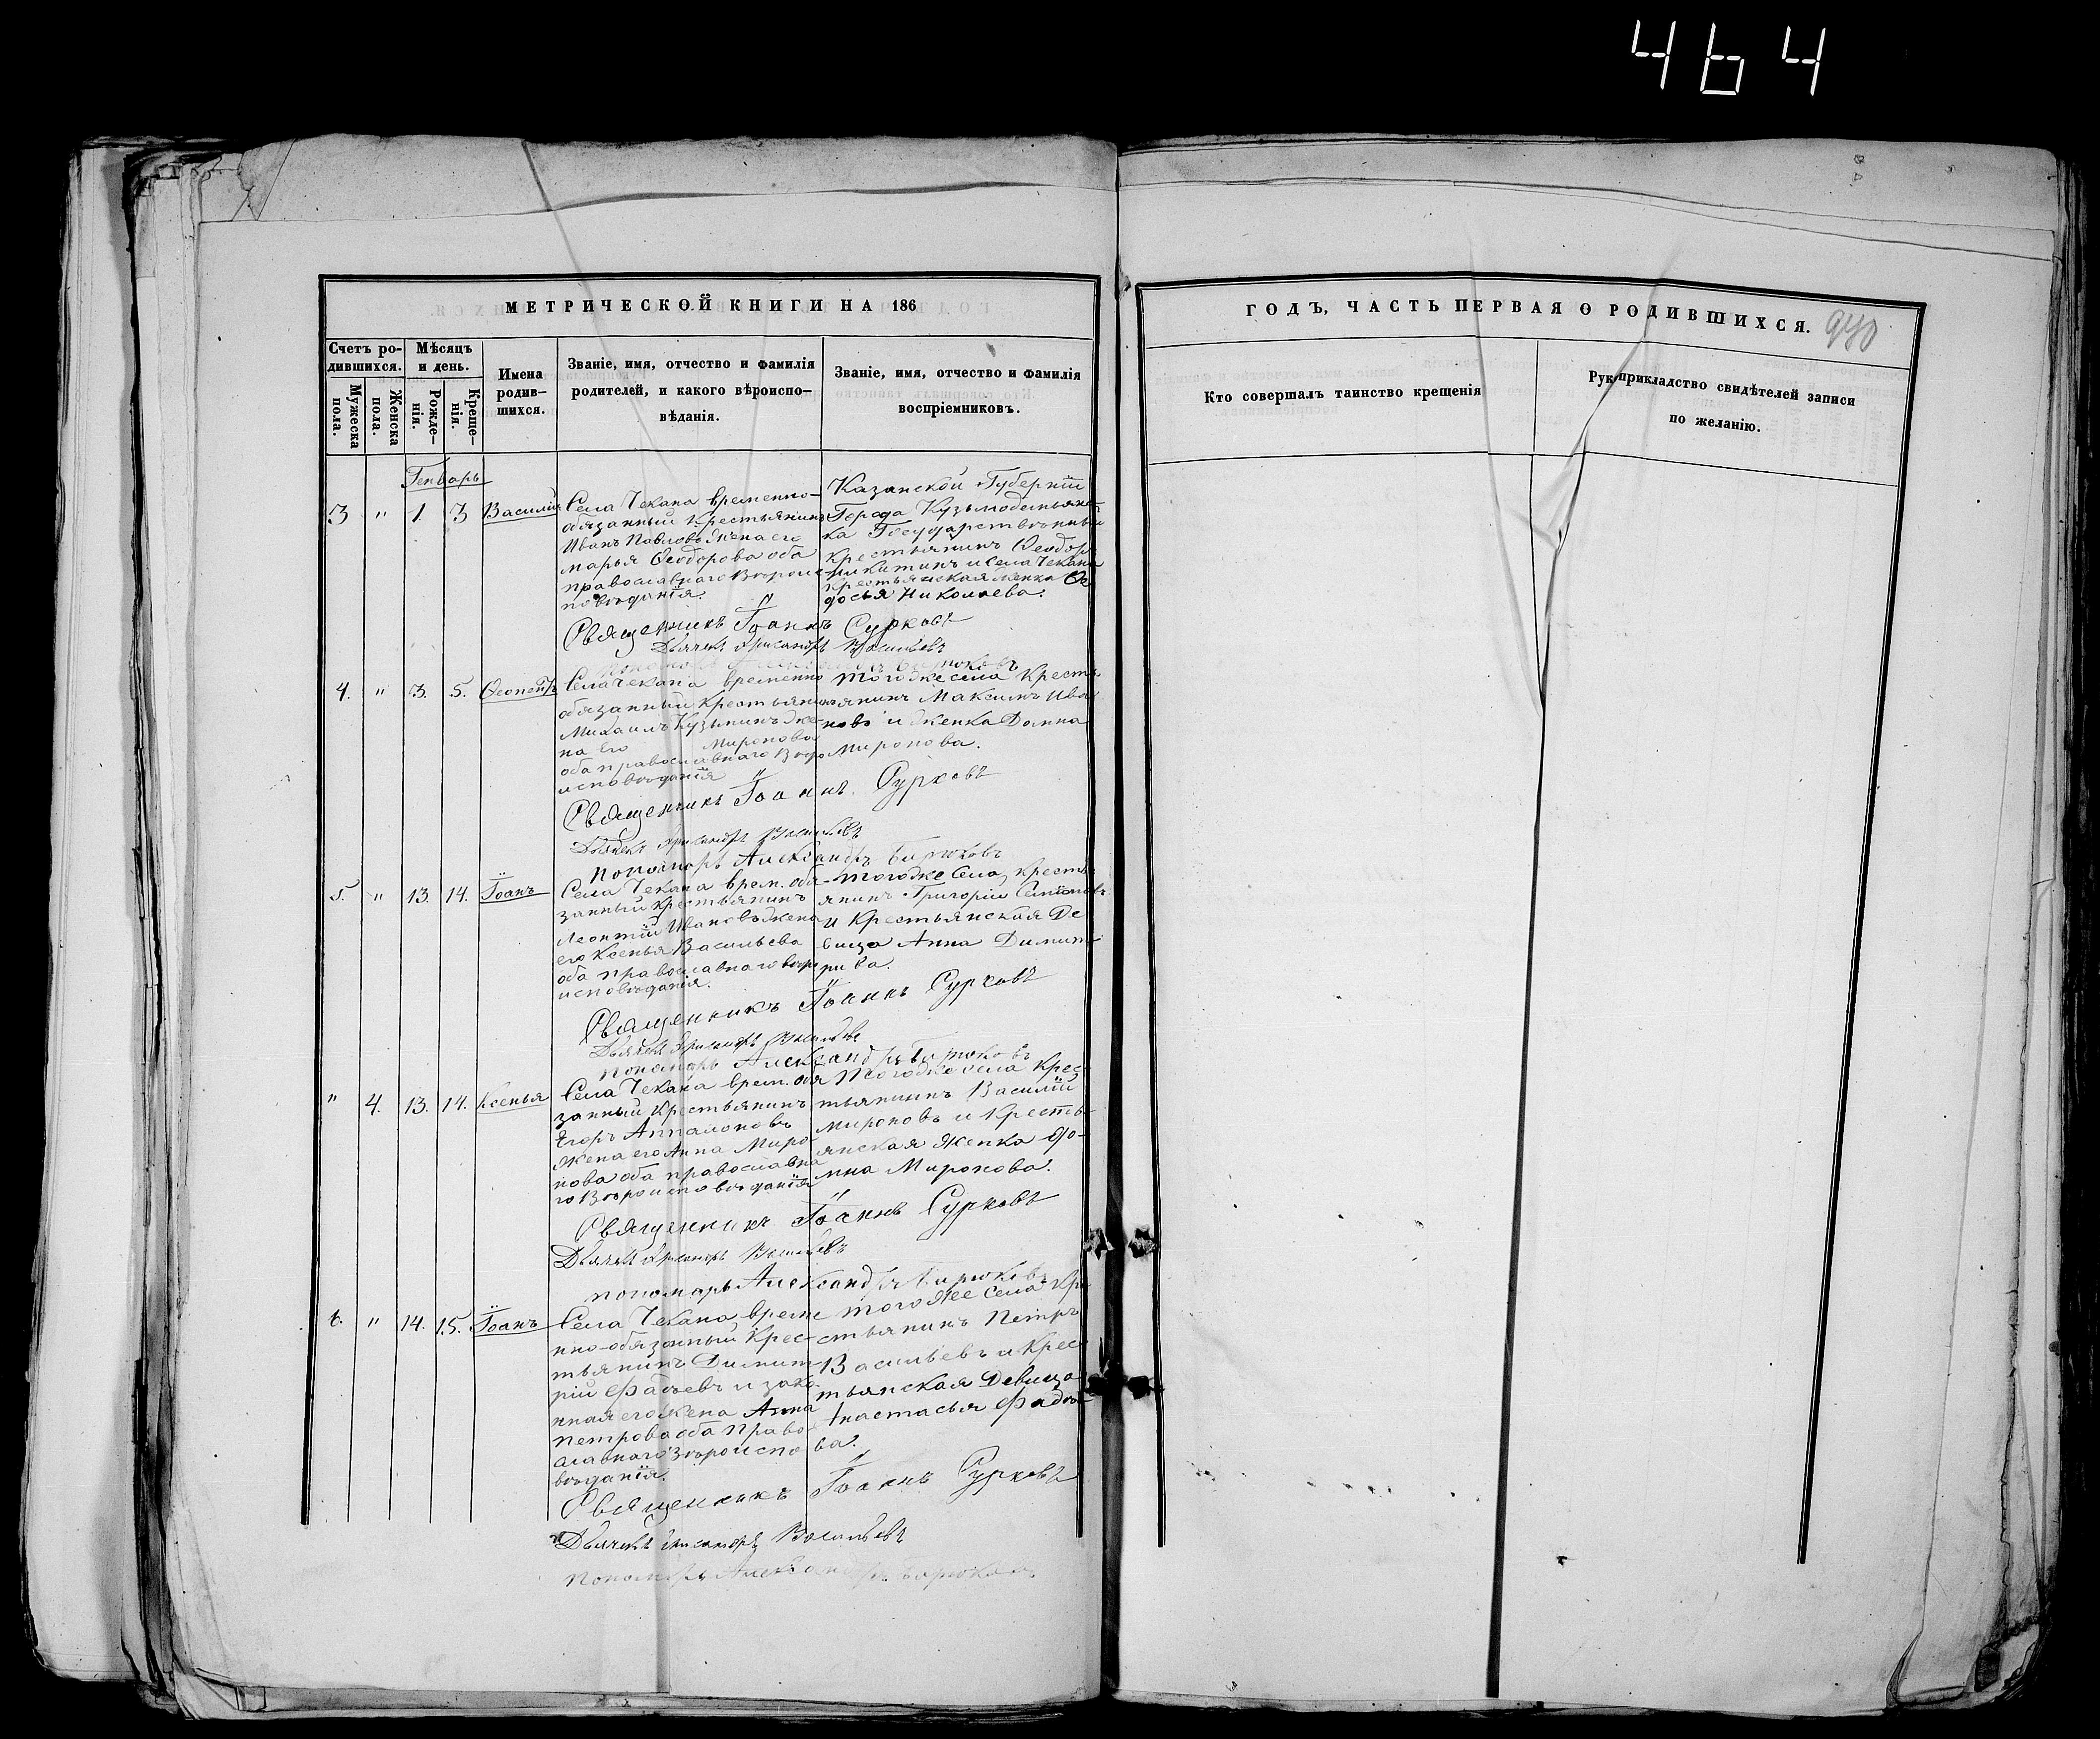 464
МЕТРИЧЕСКОЙ КНИГИ НА 186
Счетъ ро-
дившихся.
Мужеска
пола.
Женска
пола.
Мѣсяцъ
и день.
Рожде-
нія.
Креще-
нія.
Имена
родив-
шихся.
Званіе, имя, отчество и фамилія
родителей, и какого вѣроиспо-
вѣданія.
Званіе, имя, отчество и фамилія
воспріемниковъ.
Генварь
3 " 1. 3 Василій
Села Чекана временно-
обязанный Крестьянинъ
Иванъ Павловъ жена его
Марья Ѳеодорова оба
православнаго Вѣроис-
повѣданія.
Казанской Губерніи
Города Кузьмодемьянс-
ка Государственный
Крестьянинъ Ѳеодоръ
и Села Чекана
крестьянская женка Ѳе
досья Николаева.
Священникъ Іоаннъ Сурковъ
Дьячекъ Васильевъ
Пономарь Александръ Бирюковъ
4. " 3. 5.
Села Чекана временно
обязанный Крестьянинъ
Михаилъ Кузьминъ же-
на его Миронова
оба православнаго Вѣро
исповѣданія
Тогоже села Кресть
янинъ Максимъ Ива
новъ и женка Домна
Миронова.
Священникъ Іоаннъ Сурковъ
Дьячекъ Васильевъ
Пономарь Александръ Бирюковъ
5. " 13. 14. Іоанъ
Села Чекана врем. обя-
занный Крестьянинъ
Леонтій Ивановъ жена
его Ксенья Васильева
оба православнаго вѣро
исповѣданія.
Тогоже Села Кресть
янинъ Григорій Семіоновъ
и Крестьянская Де
вица Анна Димит
рива.
Священникъ Іоаннъ Сурковъ
Дьячекъ Васильевъ
Пономарь Александръ Бирюковъ
" 4. 13. 14. Ксенья
Села Чекана врем. обя
занный Крестьянинъ
Егоръ
Жена его Анна Миро
нова оба православна
го Вѣроисповѣданія
Тогоже села Крес
тьянинъ Василій
Мироновъ и Кресть-
янская Женка До-
мна Миронова.
Священникъ Іоаннъ Сурковъ
Дьячекъ Васильевъ
Пономарь Александръ Бирюковъ
6. " 14. 15. Іоанъ
Села Чекана време
нно-обязанный Крес-
тьянинъ Димит-
рій Фадѣевъ и зако-
нная его жена Анна
Петрова оба Право
славнаго Вѣроиспо
вѣданія.
Того же Села Кре
стьянинъ Петръ
Васильевъ и Крес
тьянская Девица
Анастасья Фадѣе
ва.
Священникъ Іоаннъ Сурковъ
Дьячекъ Васильевъ
Пономарь Александръ Бирюковъ
ГОДЪ, ЧАСТЬ ПЕРВАЯ О РОДИВШИХСЯ.
940
Кто совершалъ таинство крещенія
Рукоприкладство свидѣтелей записи
по желанію.